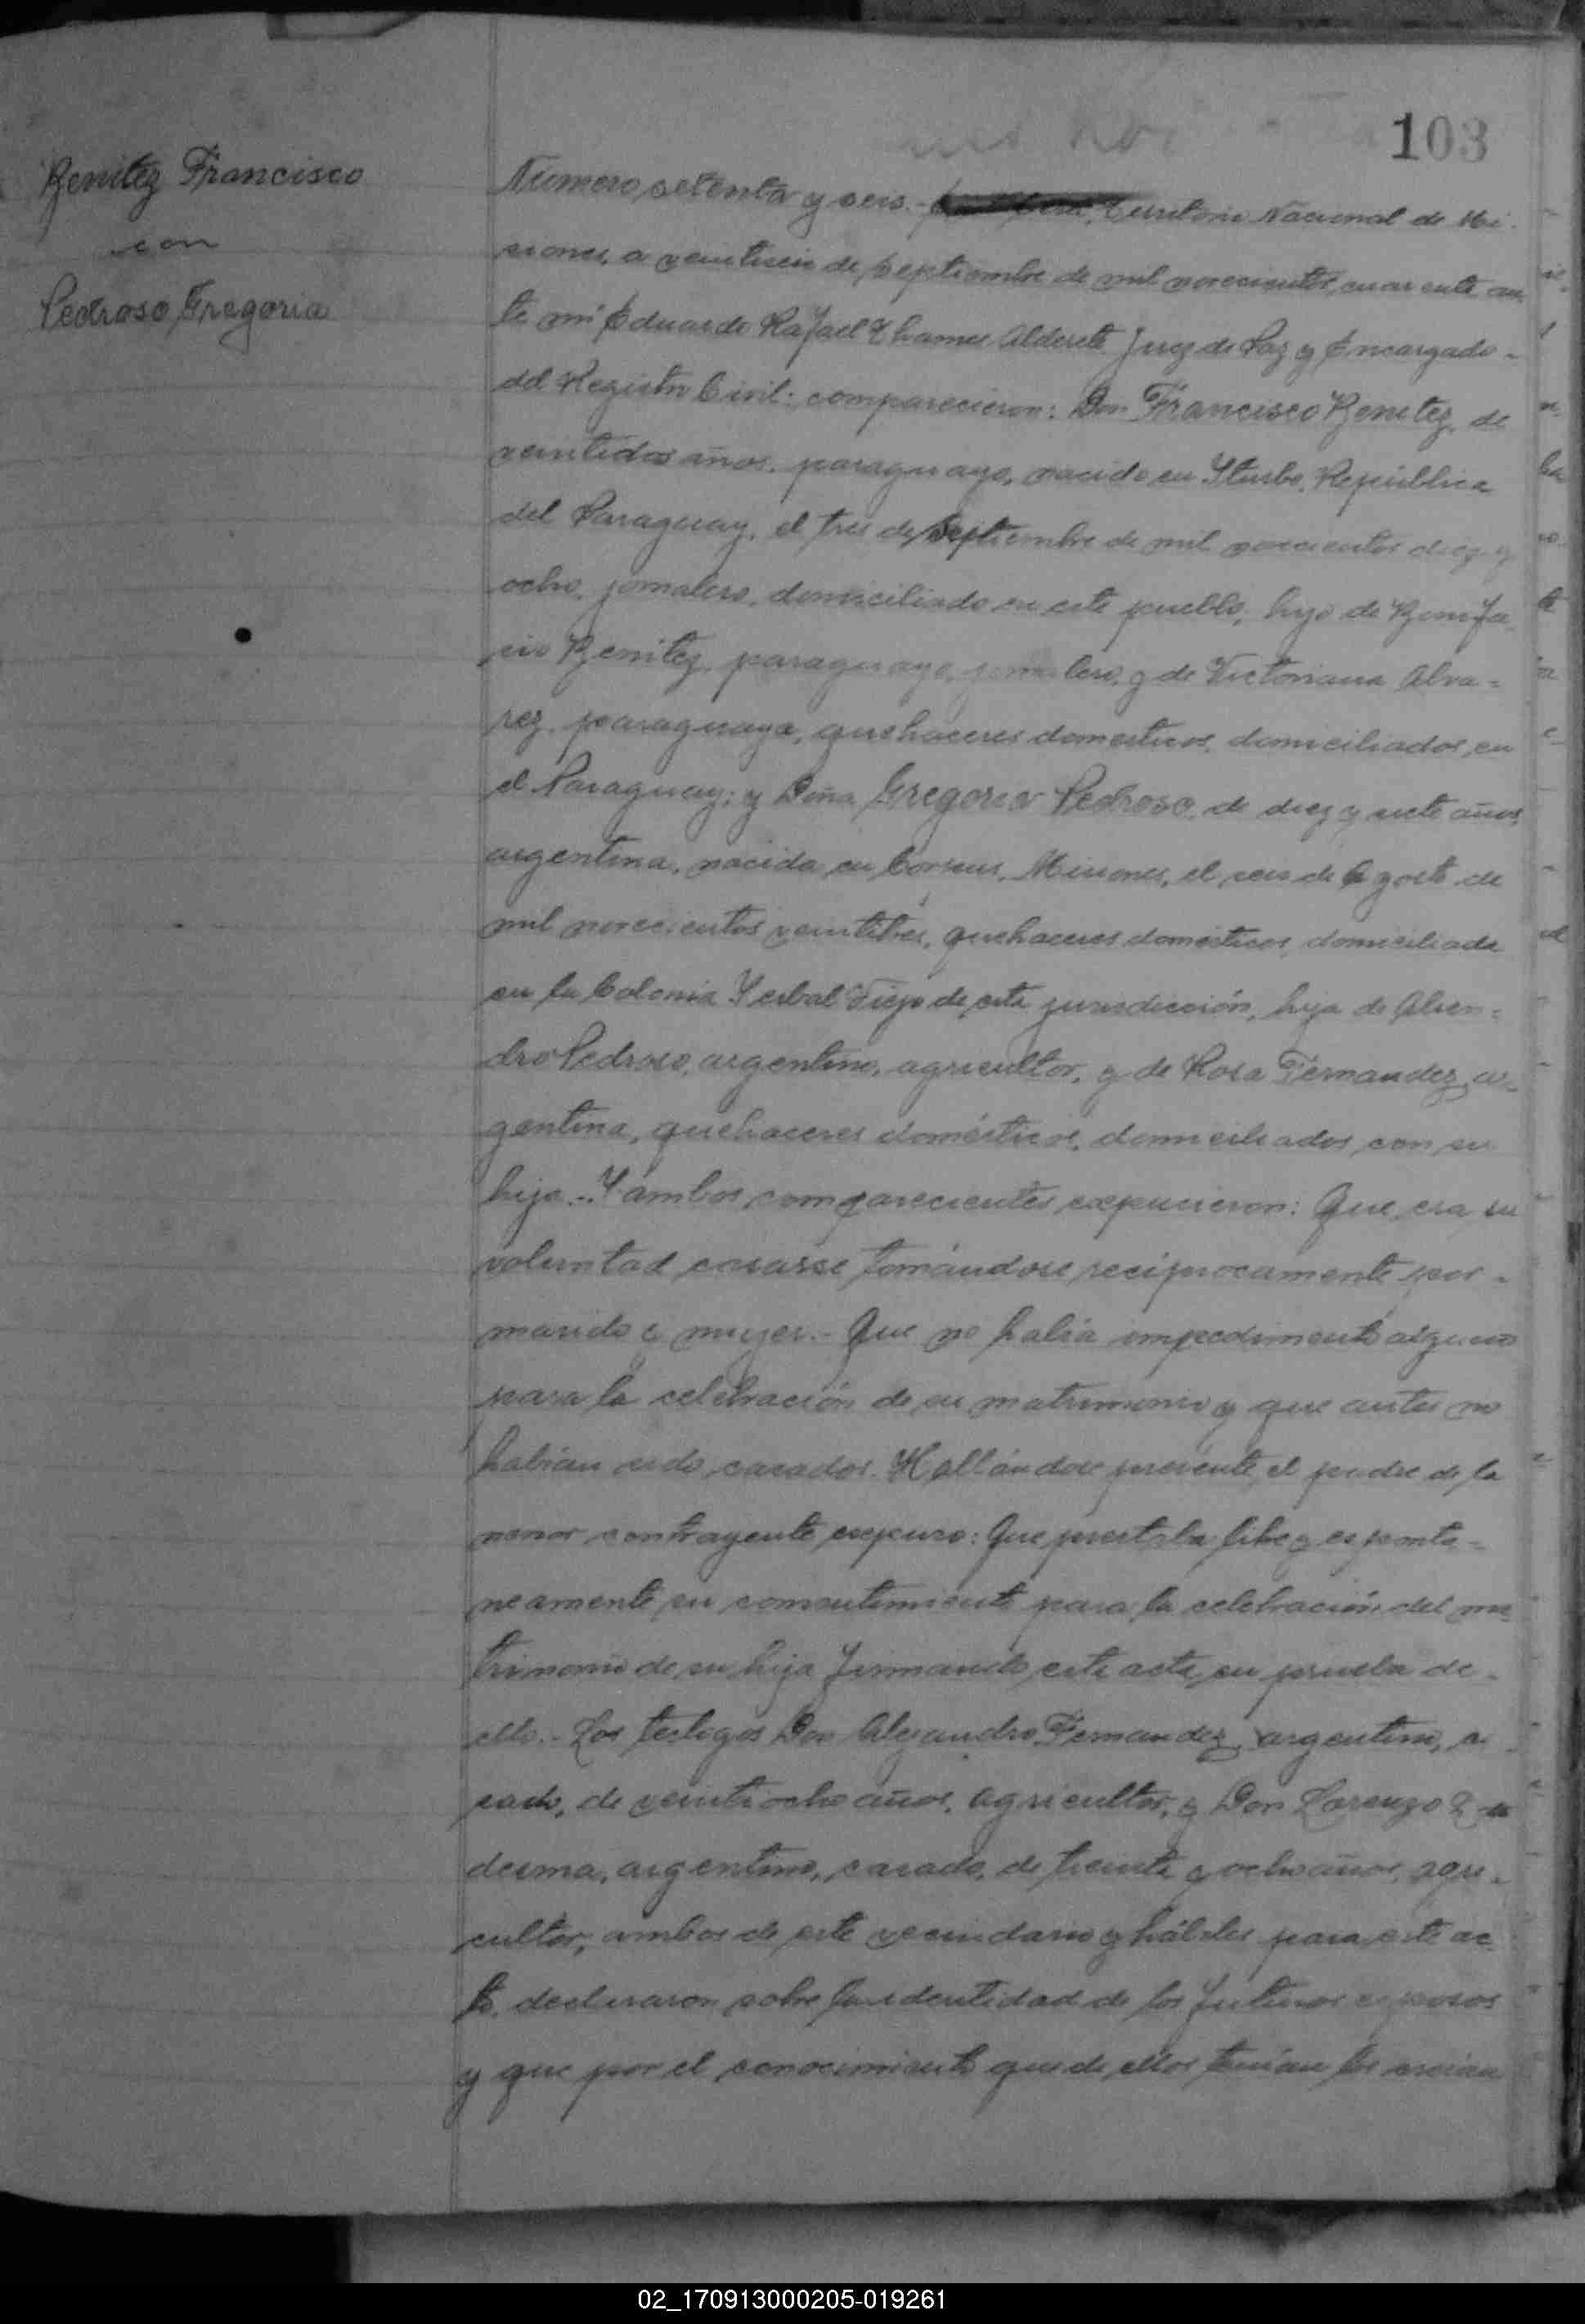 103
Benitez Francisco
con
Pedroso Gregoria
Número setenta y seis.- Territorio Nacional de Mi-
siones, a veintiseis de Septiembre de mil novecientos cuarenta an-
te mí Eduardo Rafael Thames Alderete Juez de Paz y Encargado-
del Registro Civil: comparecieron: Don Francisco Benitez, de
veintidos años, paraguayo, nacido en Iturbe, República
del Paraguay, el tres de Septiembre de mil novecientos diez y
ocho, jornalero, domiciliado en este pueblo, hijo de Bonifa-
cio Benitez, paraguayo, jornalero, y de Victoriana Alva=
rez, paraguaya, quehaceres domesticos, domiciliados en
el Paraguay; y Doña Gregoria Pedroso, de diez y siete años,
argentina, nacida en Corpus, Misiones, el seis de Agosto de
mil novecientos veintitres, quehaceres domésticos, domiciliada
en la Colonia Yerbal Viejo de esta jurisdicción, hija de
Pedroso, argentino, agricultor, y de Rosa Fernandez, ar-
gentina, quehaceres domésticos, domiciliados con su
hija.- Y ambos comparecientes expusieron: Que era su
voluntad casarse tomándose recíprocamente por-
marido y mujer.- Que no había impedimento alguno
para la celebración de su matrimonio y que antes no
habían sido casados. Hallándose presente el padre de la
menor contrayente expuso: Que prestaba libre y espontá-
neamente su consentimiento para la celebración del ma-
trimonio de su hija firmando esta acta en prueba de-
ello.- Los testigos Don Alejandro Fernandez, argentino, ca
sado, de veintiocho años, agricultor, y Don Lorenzo
desma, argentino, casado, de treinta y ocho años, agri-
cultor, ambos de este vecindario y hábiles para este ac-
to, declararon sobre la identidad de los futuros esposos
y que por el conocimiento que de ellos tenían los creían
02_170913000205-019261